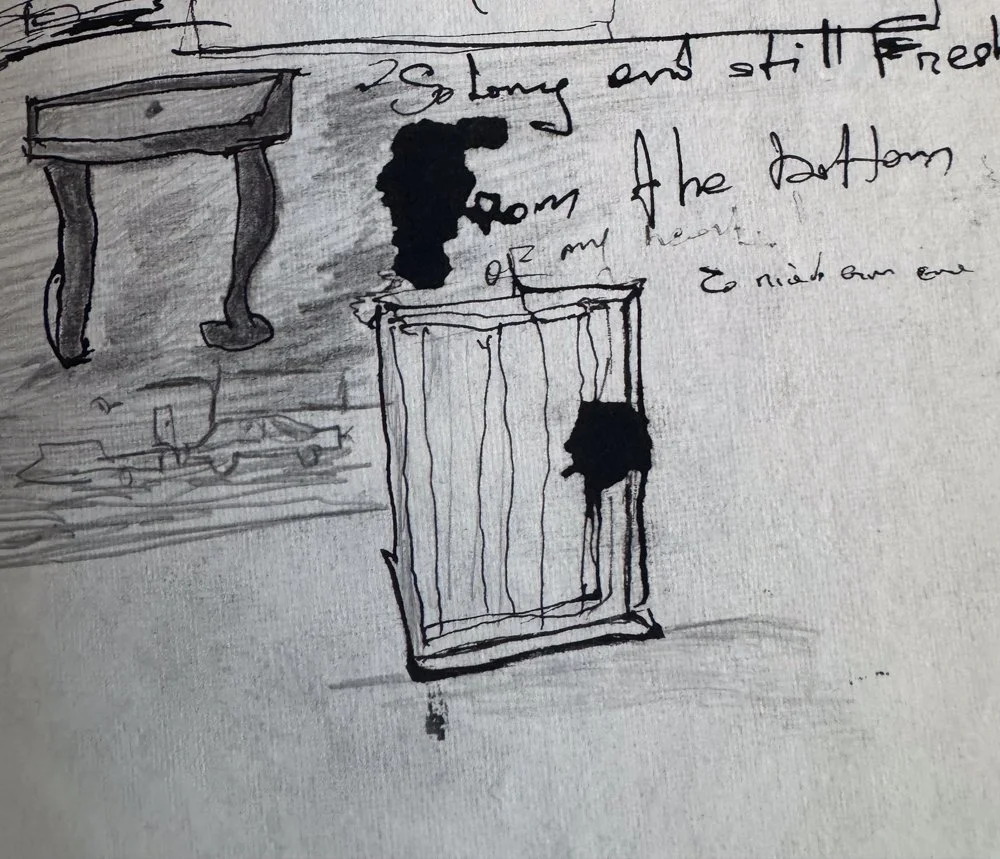 So Long and still Fresh
From the bottom
of my heart.